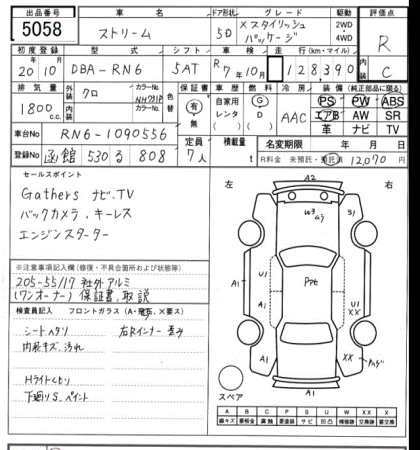 出品番号 車名 ドア形状 グレード 駆動 評価点
5058 ストリーム 5D Xスタイリッシュパッケージ 2WD 4WD R
初度登録 型式 シフト 車検 走行(km・マイル)
20年10月 DBA-RN6 5AT R7年10月 128,390 C
排気量 外装 カラーNo. 色替 保証書 車歴 燃料 冷房 装備(純正部品に限る)
1800cc クロ NH731P 有・無 自家用 レンタ ( ) G D AAC PS PW ABS
内装 カラーNo. エアB AW SR
革 ナビ TV
車台No RN6-1090556 定員 積載量 名変期限 年 月 日
登録No 函館 530 る 808 7人 t R料金 未預託・預託済 12,070円
セールスポイント
Gathers ナビ.TV
バックカメラ.キーレス
エンジンスターター
※注意事項記入欄(修復・不具合箇所および状態等)
205-55/17 社外アルミ
(ワンオーナー) 保証書,取説
検査員記入 フロントガラス(A・飛石、X要ス)
シートヘタリ 右Rインナー 歪み
内装キズ、汚れ
Hライトくもり
下廻りS、ペイント
左 右
A2
ムラ S1
A1 U1 U1
U1 XX
A1 A1 XX
A1
スペア
A B C P S U W X XX
線キズ 要板金 腐蝕 要塗装 サビ 凹凸 補修跡 交換跡 要交換